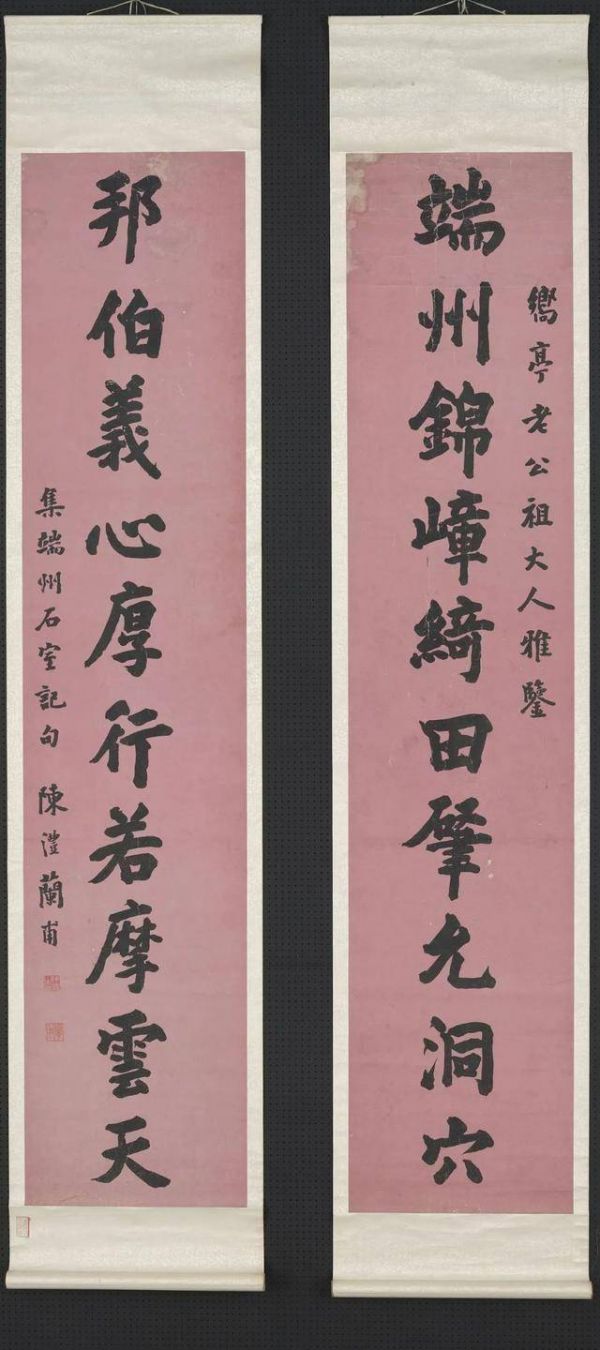 嶲亭老公祖大人雅鑒
端州錦嶂綺田肇允洞穴
邦伯義心厚行若摩雲天
集端州石室記句 陳澧蘭甫